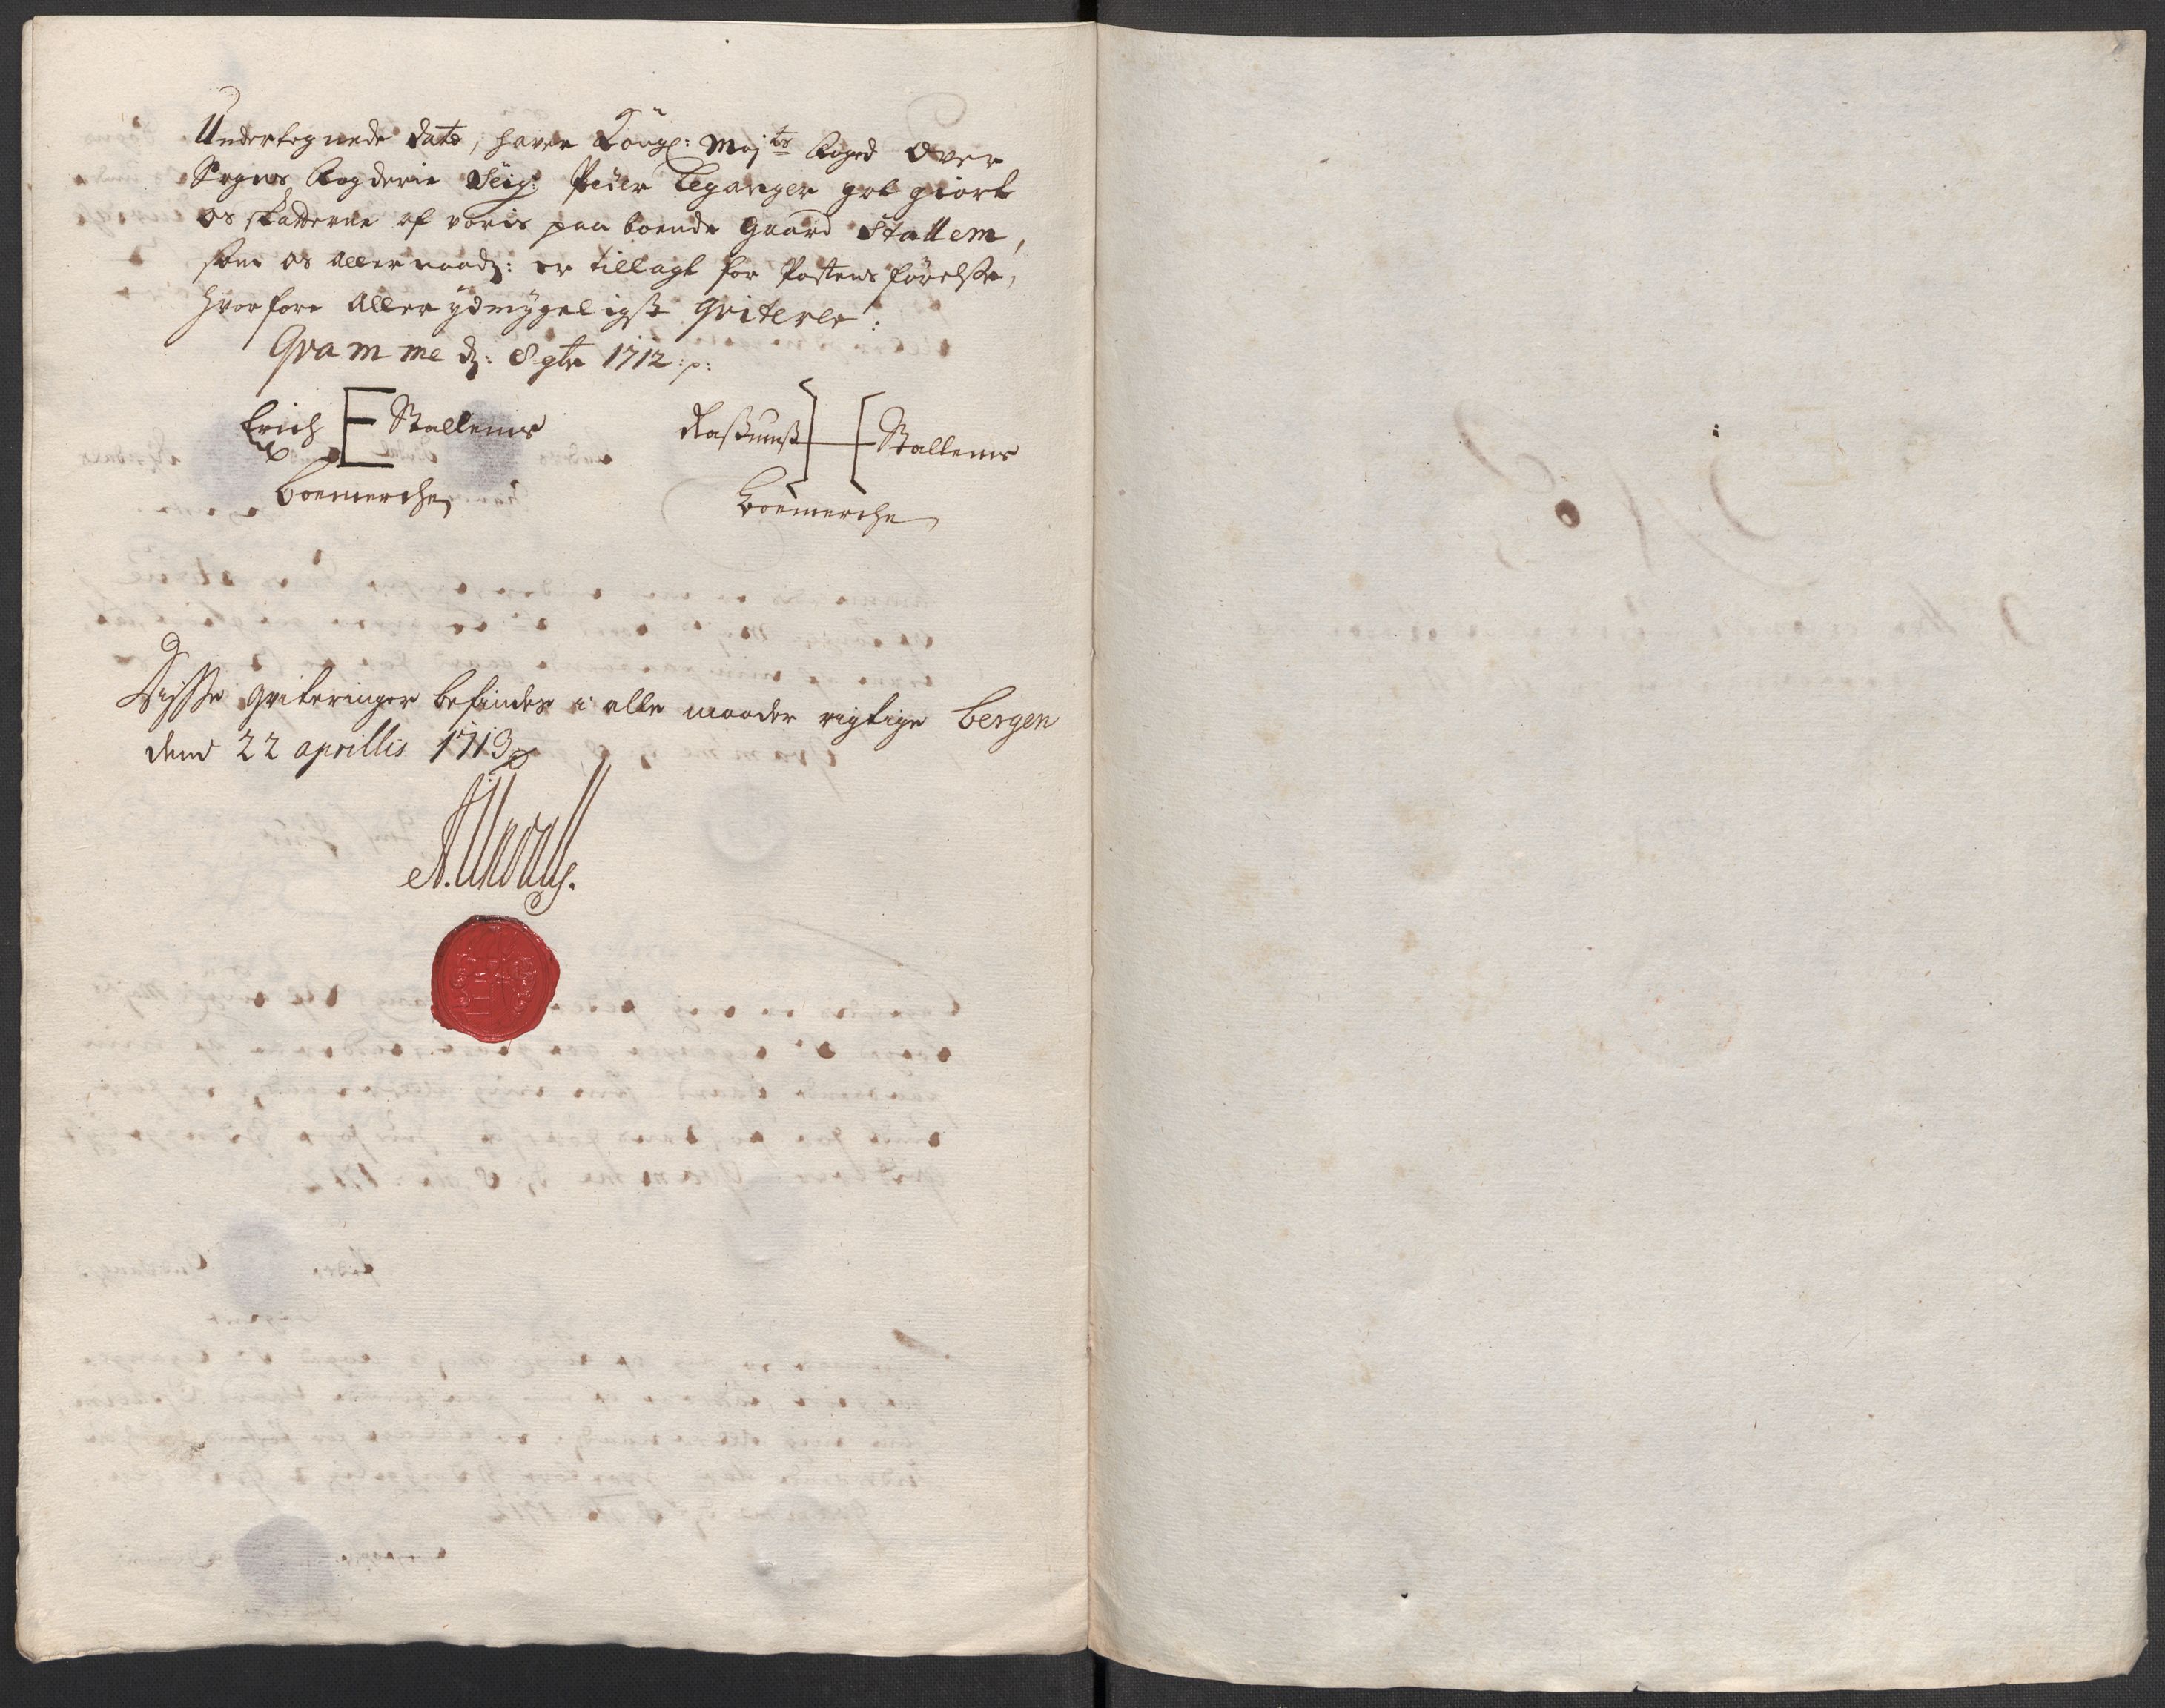 Undertegnede dato, haver Kongl: Maj:ts Foged over
Sogns Fogderie Seig:r Peder Leganger got giort
os skatterne af voris paa boende gaard Stallem,
som os allernaad: er tillagt for Postens förelsse,
hvorfore aller ydmygeligst qvitere:
Qvamme d: 8 9br 1712:
Erich E Stallems
Boemerche
Rassmus H Stallems
Boemerche
Disse qviteringer befindes i alle maader rigtige Bergen
dend 22 aprillis 1713